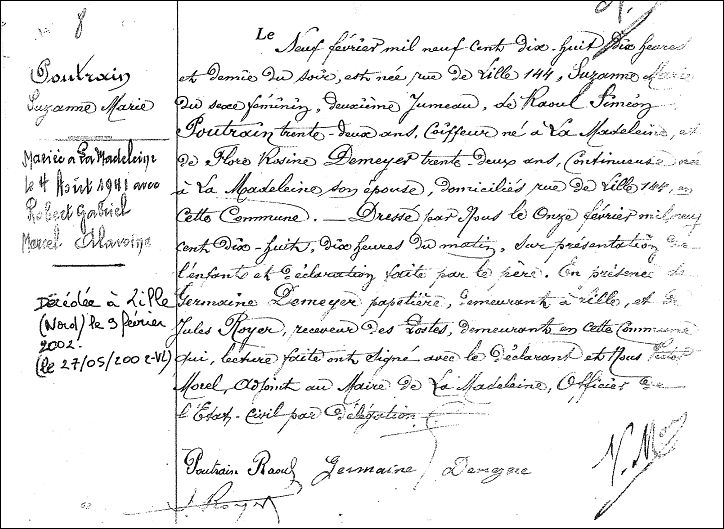 8
Poutrain
Suzanne Marie
Mariée à La Madeleine
le 4 Août 1941 avec
Robert Gabriel
Marcel Alavoine
Décédée à Lille
(Nord) le 9 février
2002.
(le 27/05/2002-VL)
Le Neuf février mil neuf cent dix-huit Dix heures
et demie du soir, est née rue de Lille 144, Suzanne Marie
du sexe féminin, deuxième Jumeau, de Raoul Siméon
Poutrain trente-deux ans, Coiffeur né à La Madeleine, et
de Flore Rosine Demeyer trente-deux ans, née
à La Madeleine son épouse, domiciliés rue de Lille 144, en
cette Commune. — Dressé par Nous le Onze février mil neuf
cent dix-huit, dix heures du matin, sur présentation de
l'enfant et déclaration faite par le père. En présence de
Germaine Demeyer papetière, demeurant à Lille, et de
Jules Royer, receveur des Postes, demeurant en cette Commune
qui, lecture faite ont signé avec le déclarant et Nous Victor
Morel, adjoint au Maire de La Madeleine, Officier de
l'Etat-civil par délégation.
Poutrain Raoul Germaine Demeyer
J. Royer
V. Morel